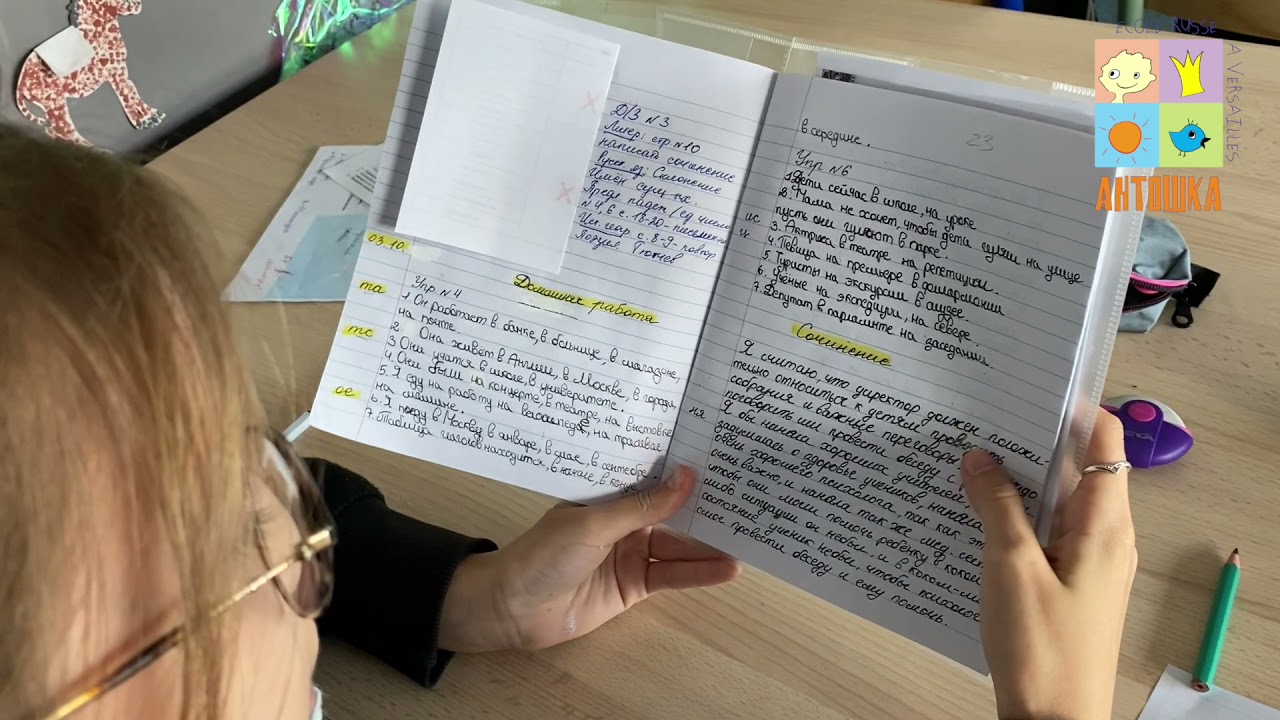 Д/З №3
Литер: стр №10
написал сочинение
Русск яз: Склонение
Имён сущ ых.
Предл падеж (ед число
№ 4,6 с. 18-20-письменно
с. 8-9-повтор
Тютчев
03.10.
Домашняя работа
та
тс
ое
Упр №4
1. Он работает в банке, в больнице, в магазоне,
на почте.
2. Она живёт в Англии, в Москве, в городи
3 Они учатся в школе, в университете.
4. Они были на концерте, в театре, на выставке
5. Я еду на работу на велосипеде, на трамвае
на машине.
6. Я поеду в Москву в январе, в мае, в сентебре.
7. Таблица глаголов находится, в начале, в конце
в середине.
23
Упр №6
1. Дети сейчас в школе, на уроке
2. Мама не хочет, чтобы дети гуляли на улице
пусть они гуляют в парке.
3. Актриса в театре на репетиции.
4. Певица на премьере в филармонии
5. Туристы на экскурсии в музее
6. Учёные на экспедиции, на севере.
7. Депутат в парламенте на заседании.
ис
и
Сочинение
Я считаю, что директор должен положи-
тельно относиться к детям, проводить
собрания и важные переговоры
поговорить или провести беседу с
Я бы наняла хороших учителей
задумалась о здоровье учеников, наняла
ня
обы хорошего психолога, так как это
очень важно, и наняла так же мед. сем
чтобы они могли помочь ребёнку в какой
либо ситуации он небыл. и в каком-ли
состояние ученик небыл, чтобы психолог
смог провести беседу и ему помочь.
ECOLE RUSSE
A VERSAILLES
АНТОШКА